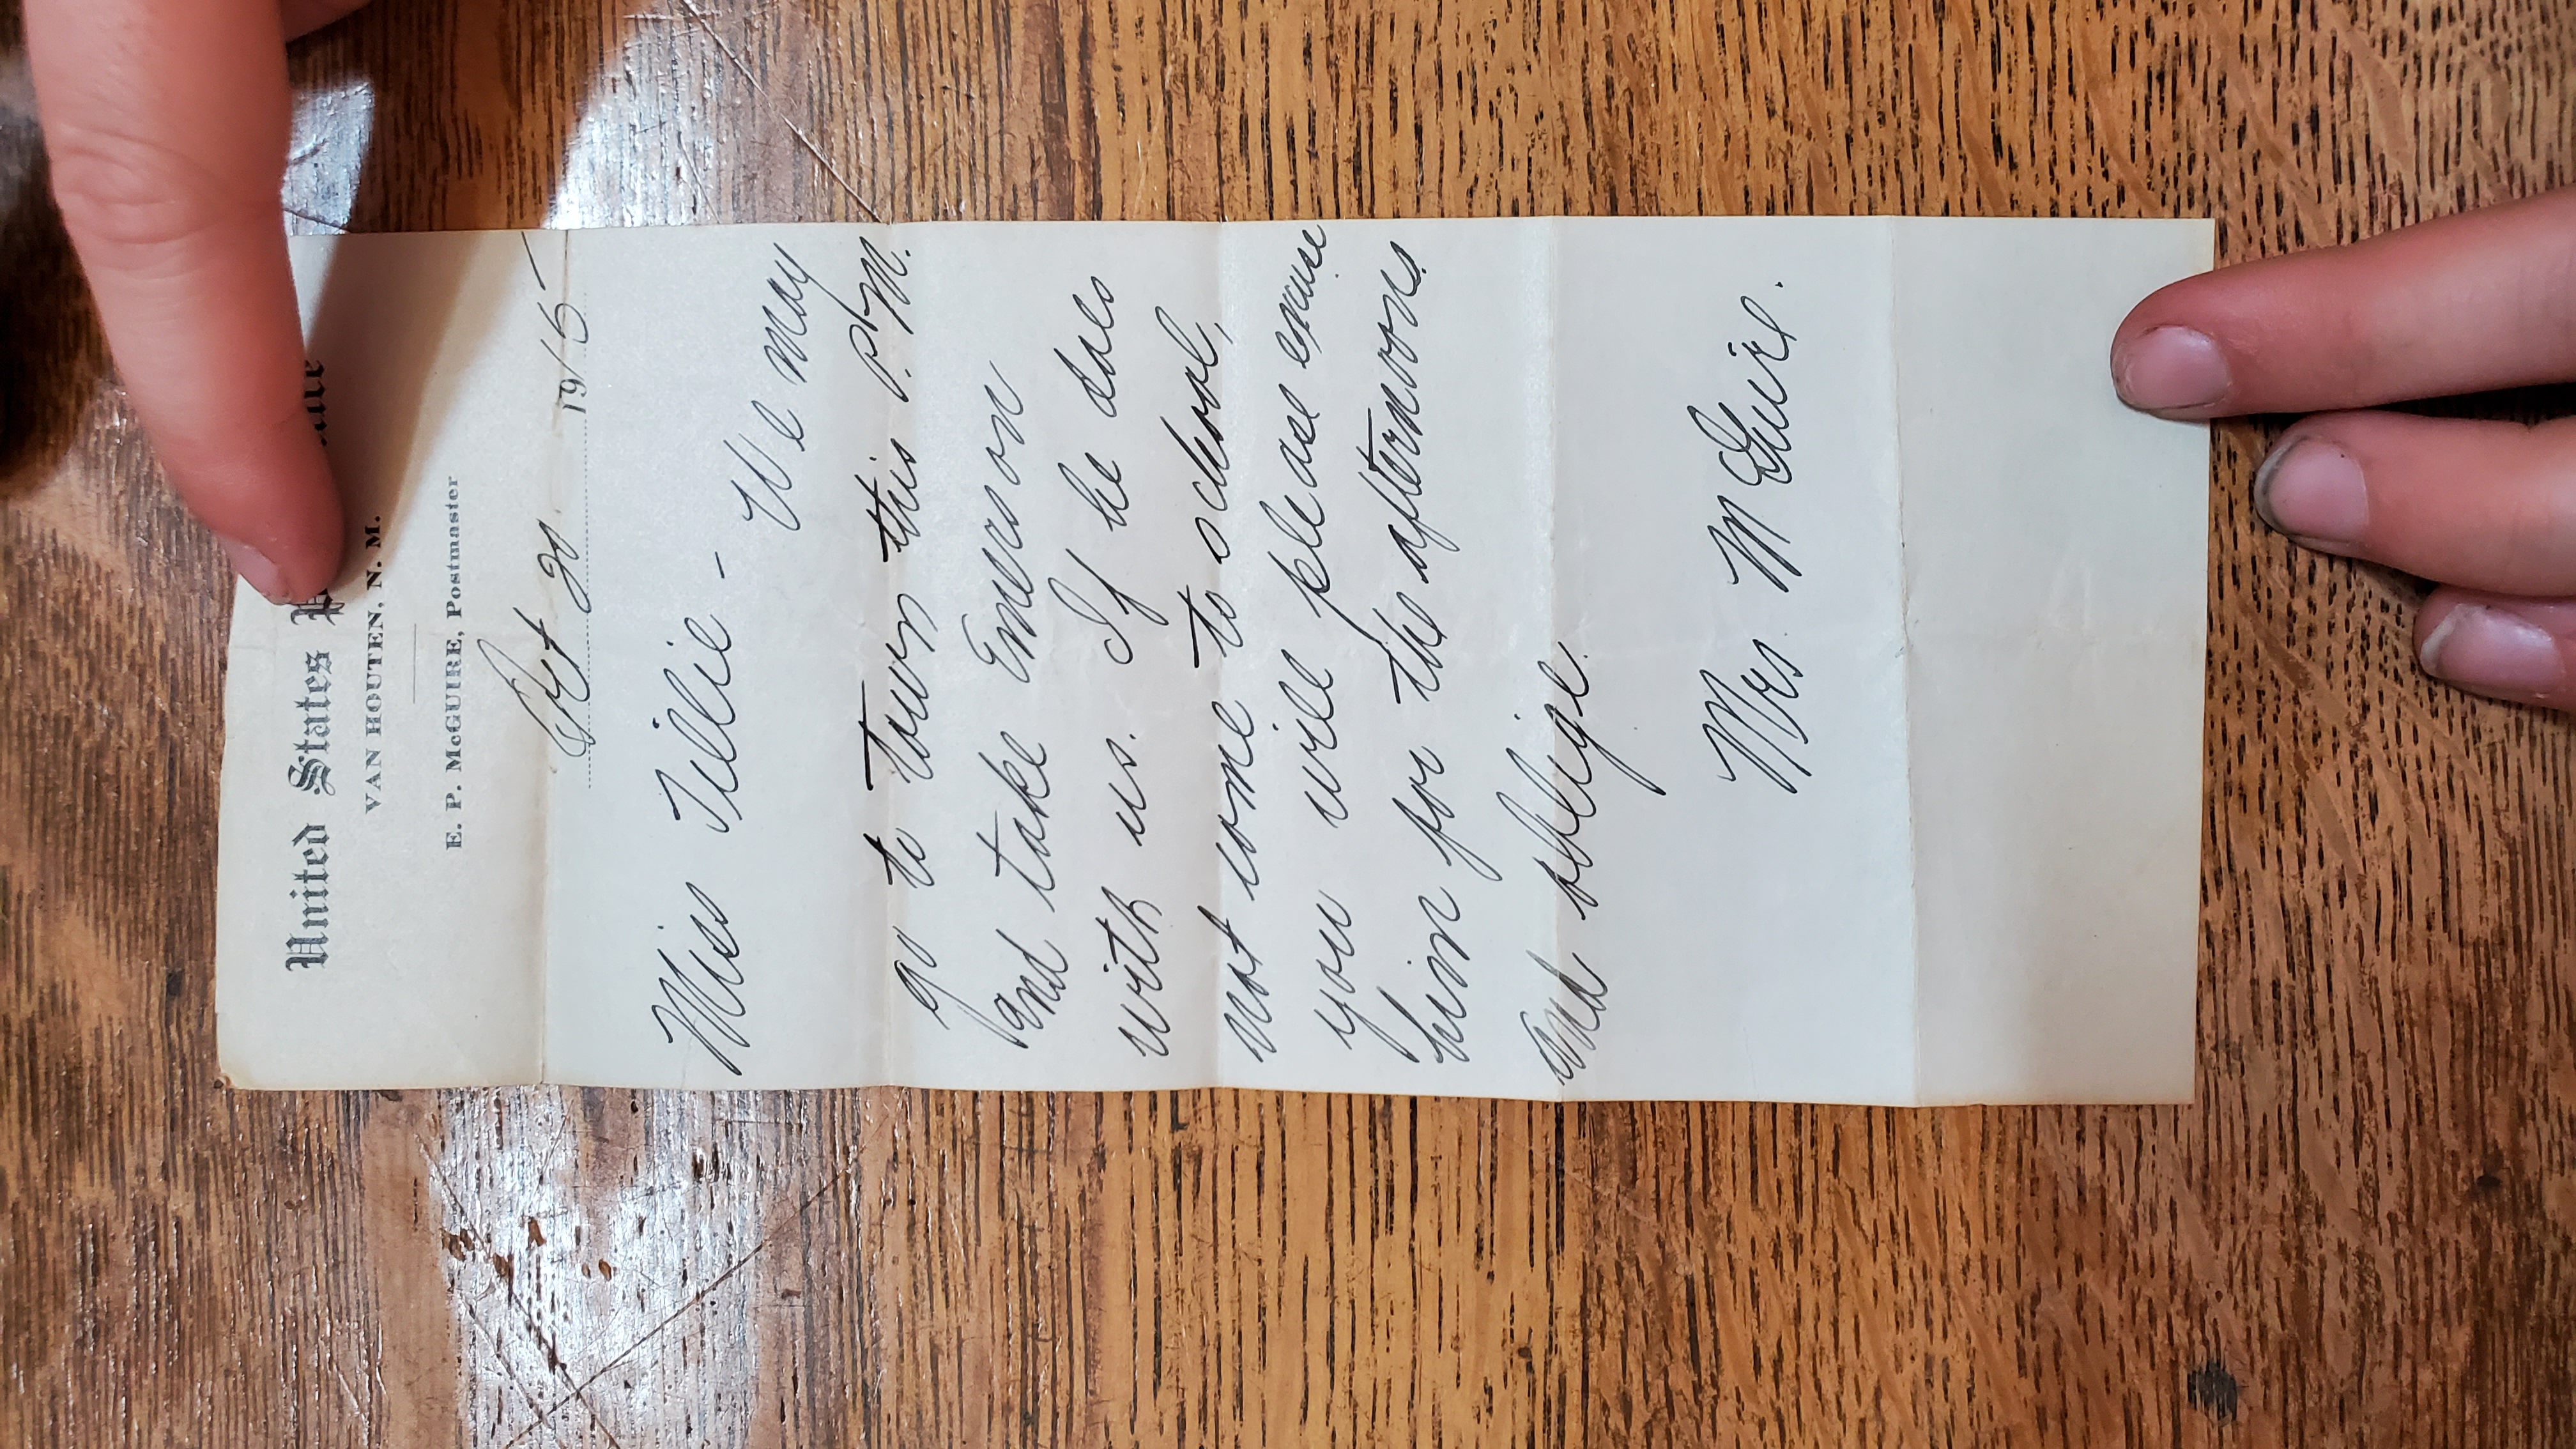 United States
VAN HOUTEN, N. M.
E. P. McGUIRE, Postmaster
Oct 20 1915
Miss Tillie -
We may
go to town this P.M.
and take Emerson
with us. If he does
not come to school,
you will please excuse
him for the afternoons.
and oblige.
Mrs. McGuire.